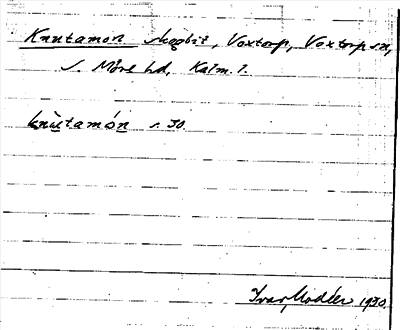 Knutamon skogbit, Voxtorp, Voxtorp sn,
S. Möre hd, Kalm. l.
knu̇tamón s. 30.
Ivar Modéer 1930.